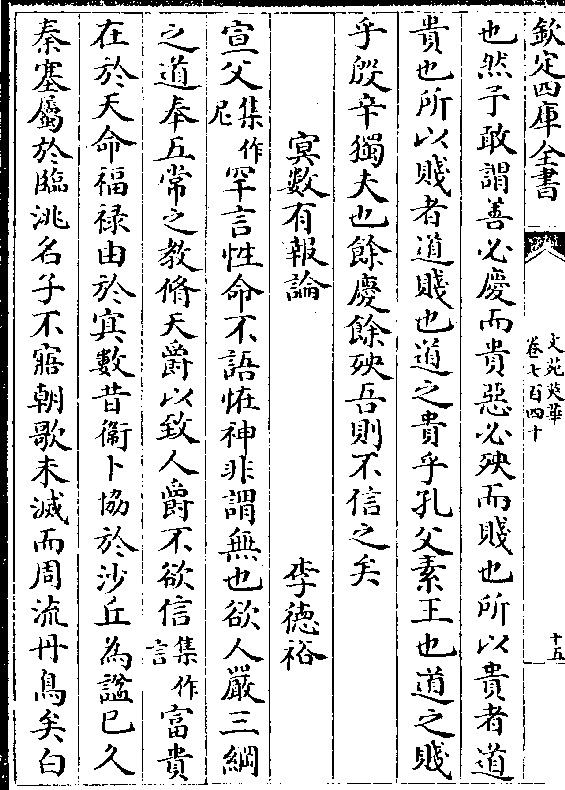 欽定四庫全書
文苑英華
卷七百四十
十五
也然予敢謂善必慶而貴惡必殃而賤也所以貴者道
貴也所以賤者道賤也道之貴乎孔父素王也道之賤
乎殷辛獨夫也餘慶餘殃吾則不信之矣
冥數有報論 李德裕
宣父集作尼罕言性命不語怪神非謂無也欲人嚴三綱
之道奉五常之教脩天爵以致人爵不欲信集作言富貴
在於天命福禄由於冥數昔衞卜協於沙丘為謚已久
秦塞屬於臨洮名子不寤朝歌未滅而周流丹鳥矣白